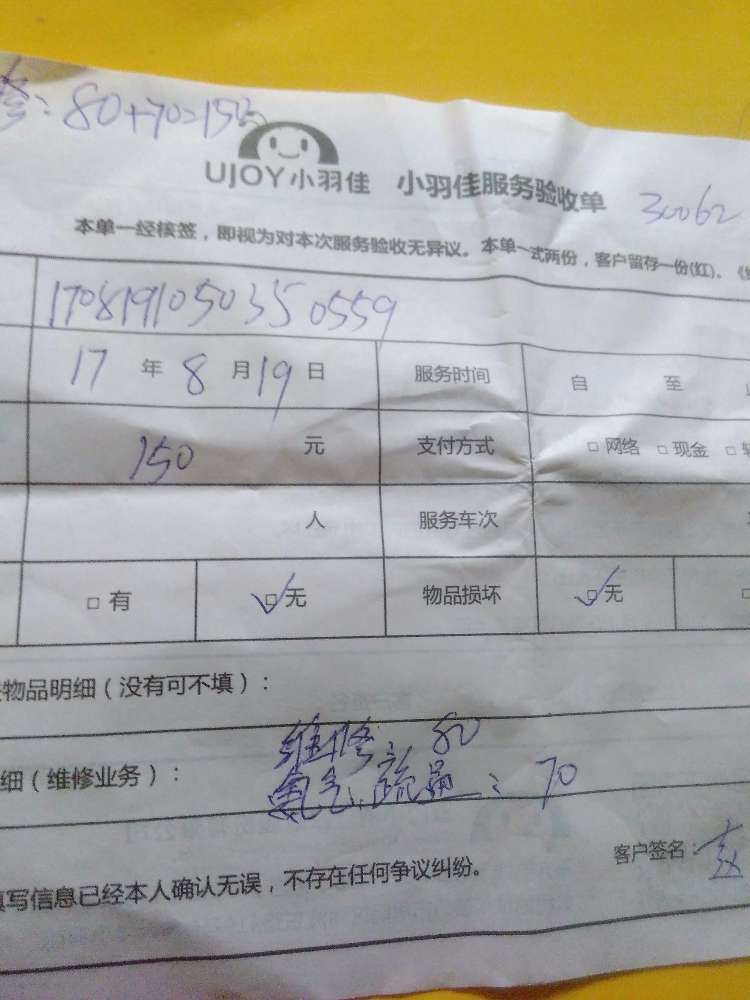 : 80+70=150
UJOY小羽佳 小羽佳服务验收单 30062
本单一经核签，即视为对本次服务验收无异议。本单一式两份，客户留存一份(红)。
1708191050350559
17 年 8 月 19 日 服务时间 自 至
150 元 支付方式 □ 网络 □ 现金 □
人 服务车次
□ 有 ☑ 无 物品损坏 ☑ 无 □
物品明细（没有可不填）：
维修: 80
细（维修业务）：
: 70
客户签名: 赵
填写信息已经本人确认无误，不存在任何争议纠纷。